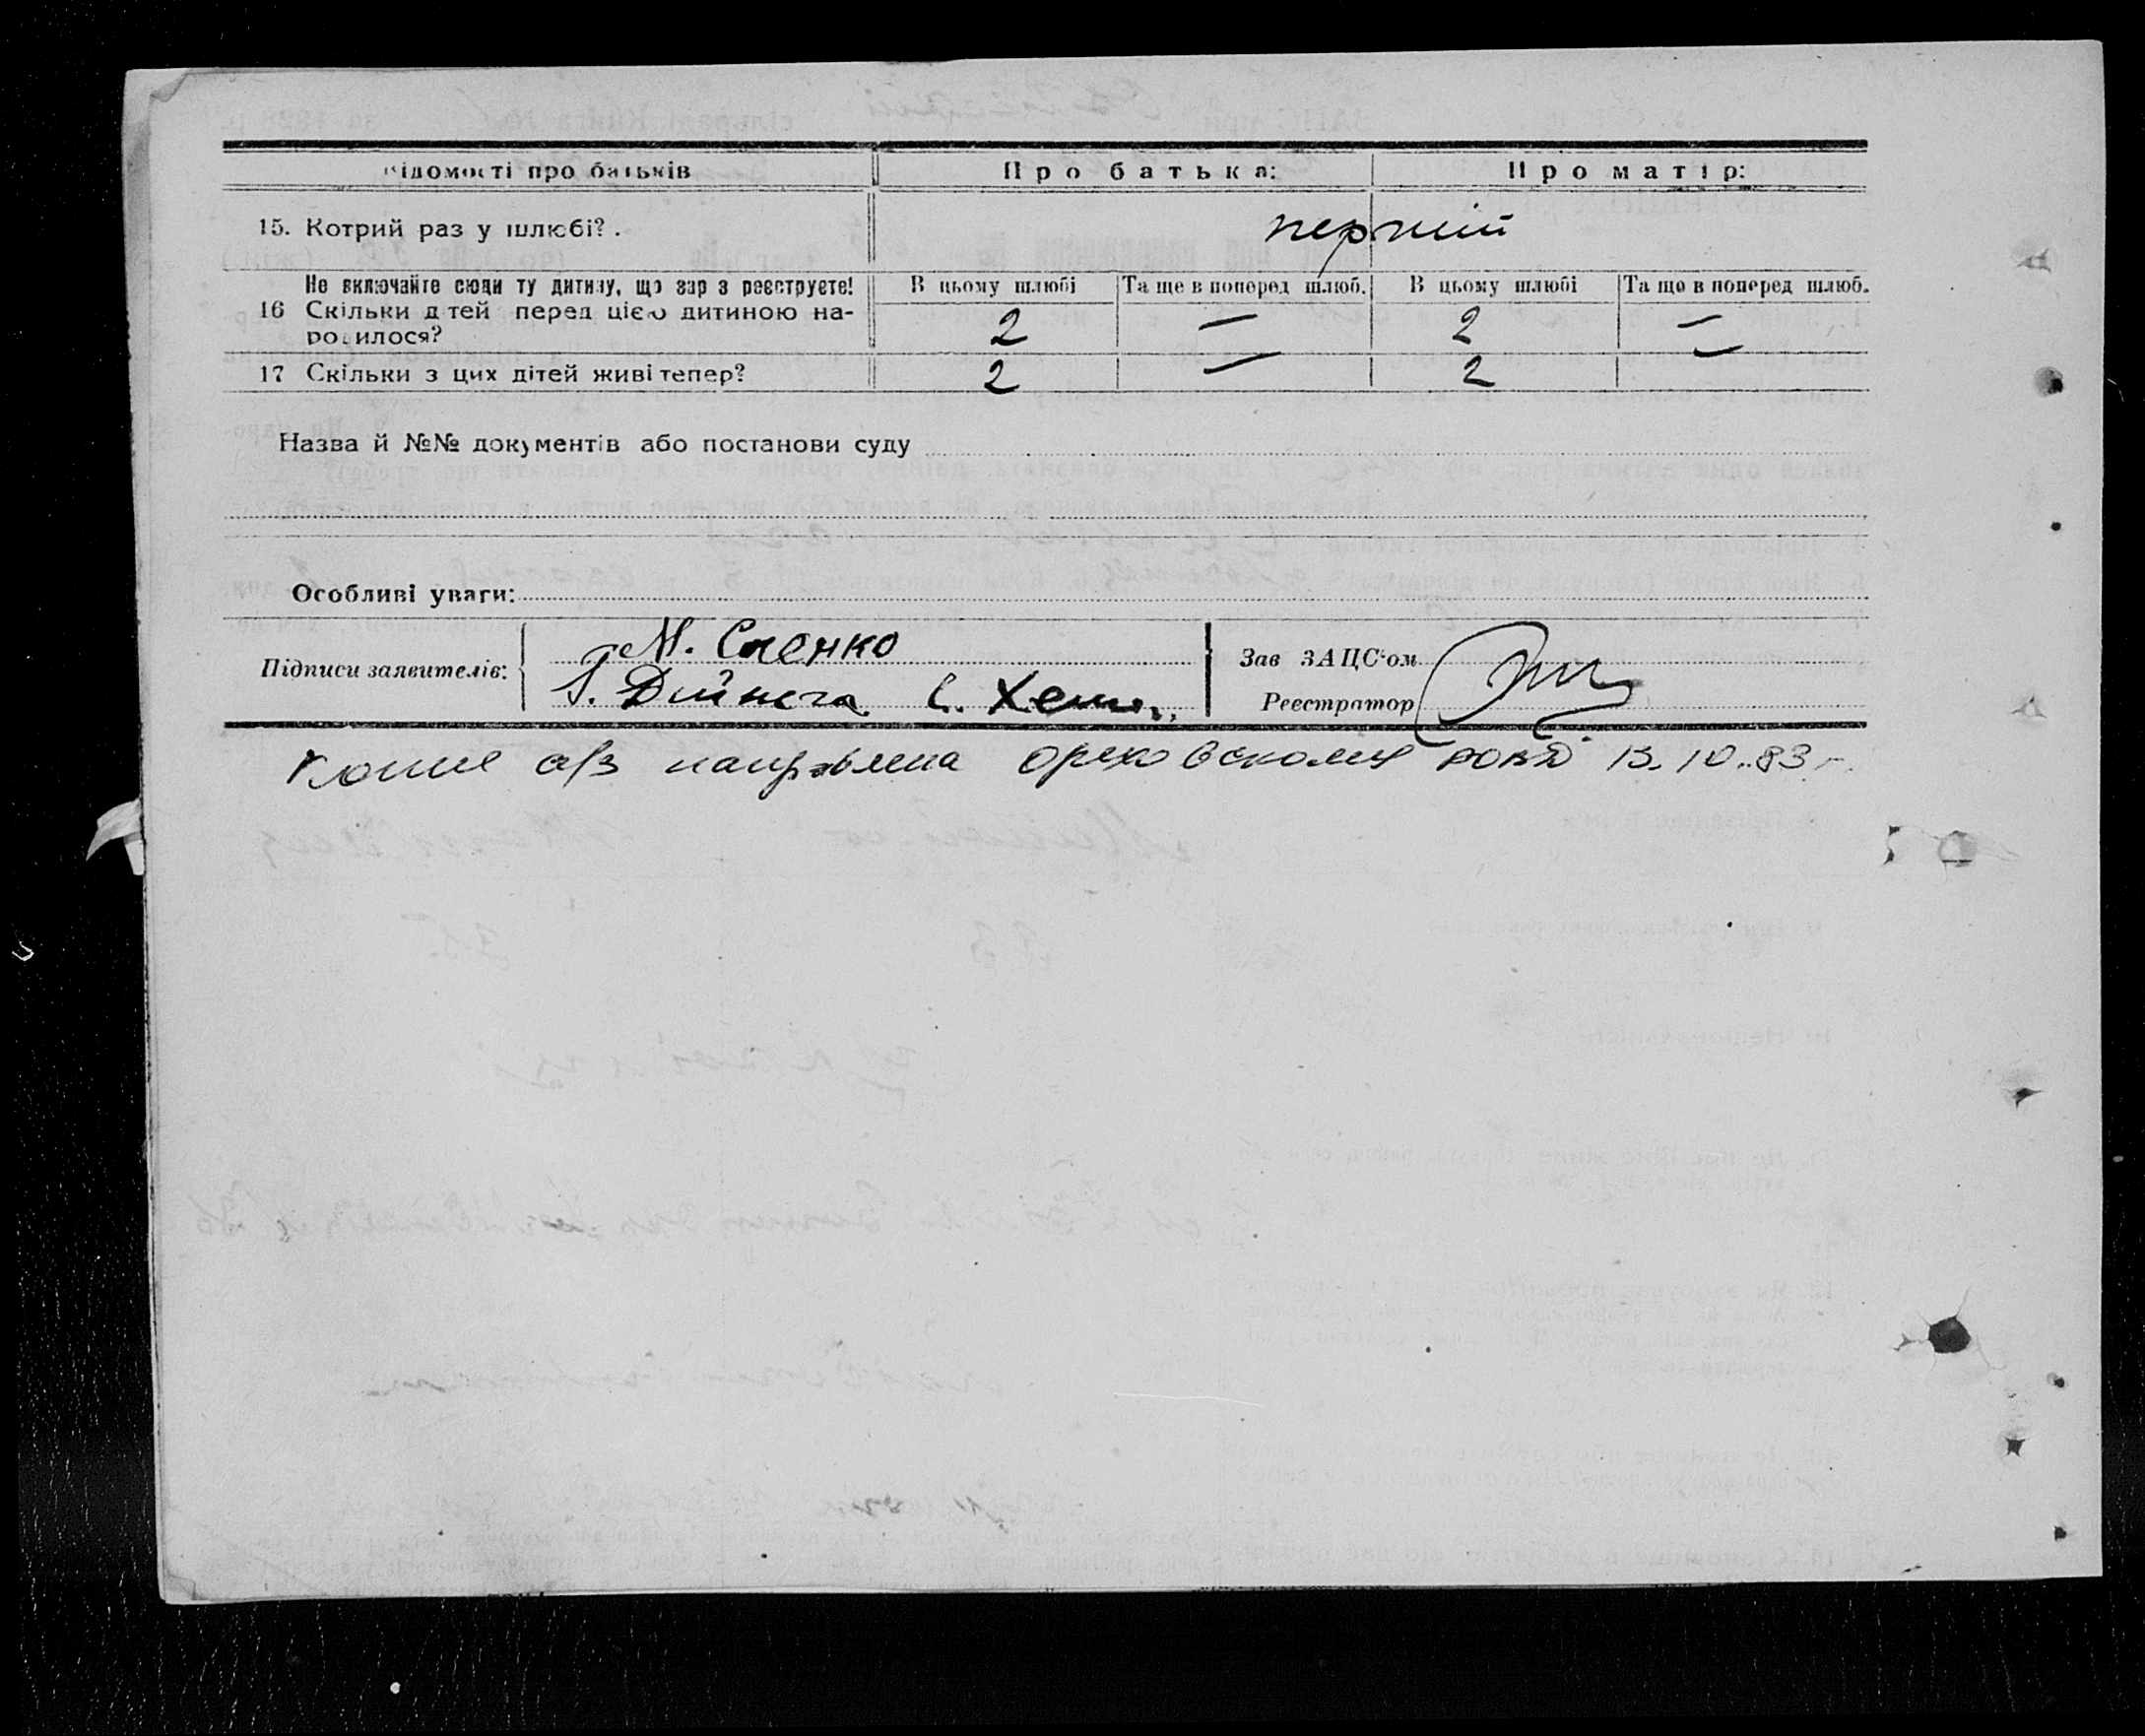 Відомості про батьків Про батька: Про матір:
15. Котрий раз у шлюбі?. перший
Не включайте сюди ту дитину, що зараз реєструєте! В цьому шлюбі Та ще в поперед шлюб. В цьому шлюбі Та ще в поперед шлюб.
16 Скільки дітей перед цією дитиною на-
родилося? 2 — 2 —
17 Скільки з цих дітей живі тепер? 2 — 2 —
Назва й №№ документів або постанови суду
Особливі уваги:
Підписи заявителів: М. Саенко
Г. Дейнега
Зав ЗАЦС'ом
Реєстратор
Копия а/з направлена Ореховскому РОВД 13.10.83 г.